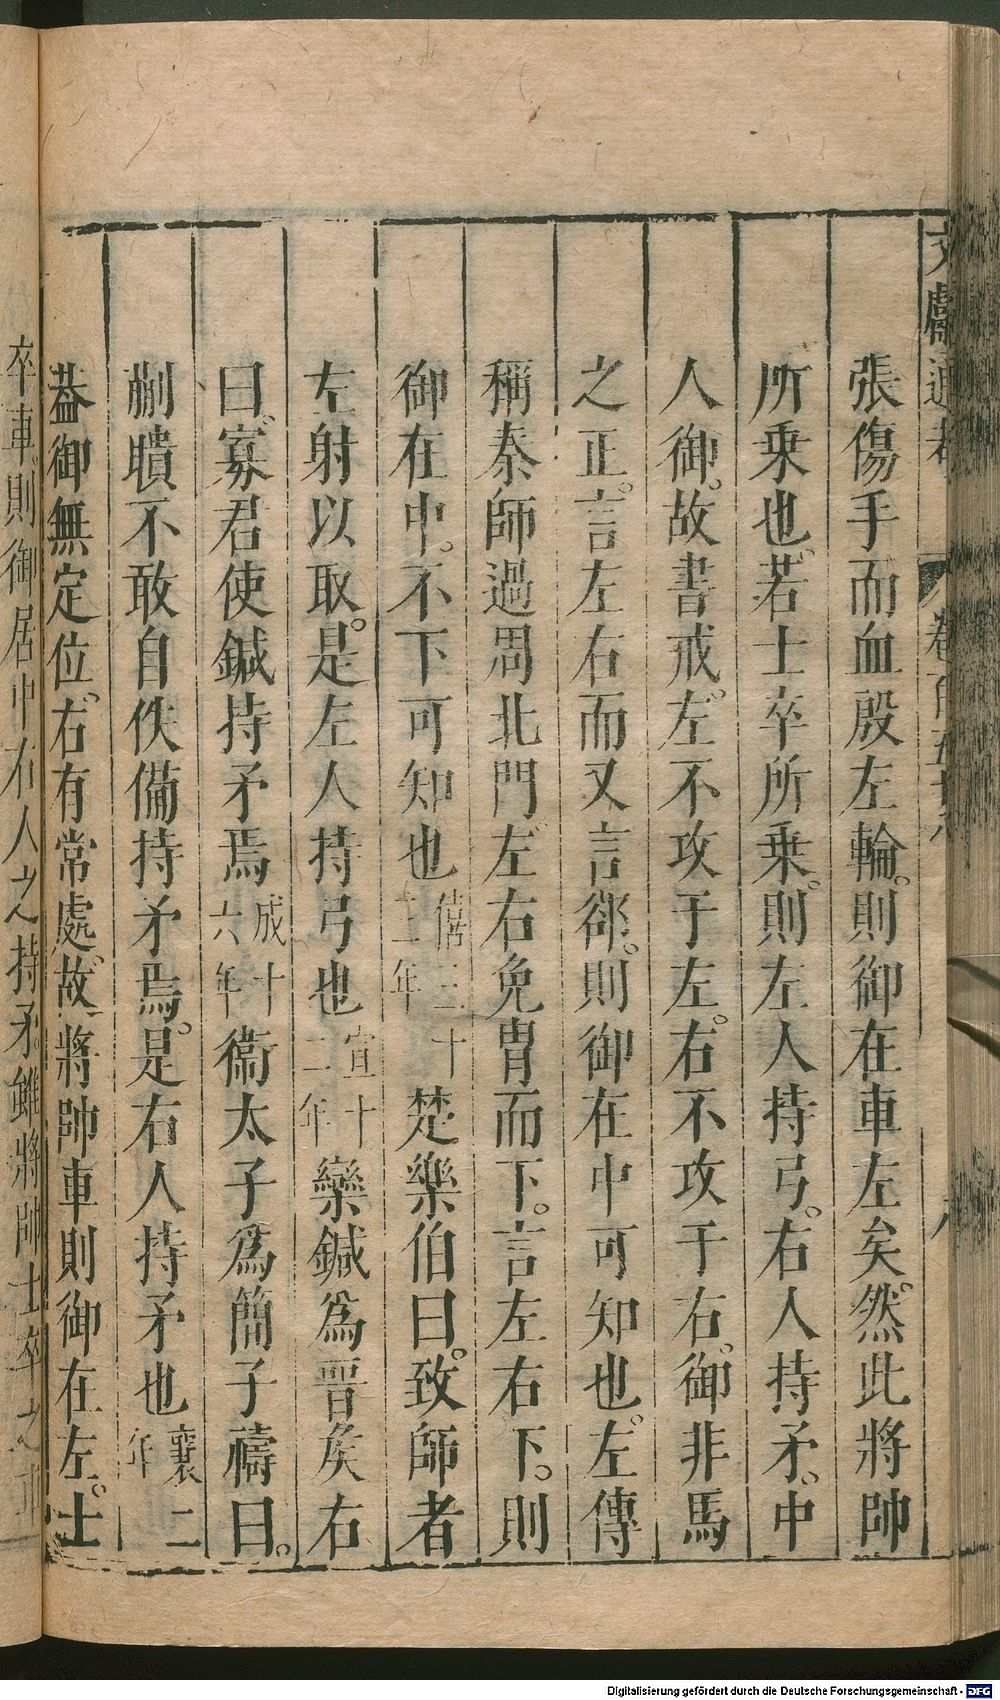 文獻通考 卷百五十八 八
張傷手而血殷左輪。則御在車左矣。然此將帥
所乘也。若士卒所乘。則左人持弓。右人持矛。中
人御。故書戒左不攻于左。右不攻于右。御非馬
之正。言左右而又言御。則御在中可知也。左傳
稱秦師過周北門左右免胄而下。言左右下。則
御在中。不下可知也僖三十三年楚樂伯曰。致師者
左射以取。是左人持弓也宣十二年欒鍼為晉矦右
曰。寡君使鍼持矛焉成十六年衞太子為簡子禱曰。
蒯聵不敢自佚備持矛焉。是右人持矛也襄二年
葢御無定位。右有常處。故將帥車則御在左。士
卒車則御居中右人之持矛。雖將帥士卒之車
Digitalisierung gefördert durch die Deutsche Forschungsgemeinschaft - DFG